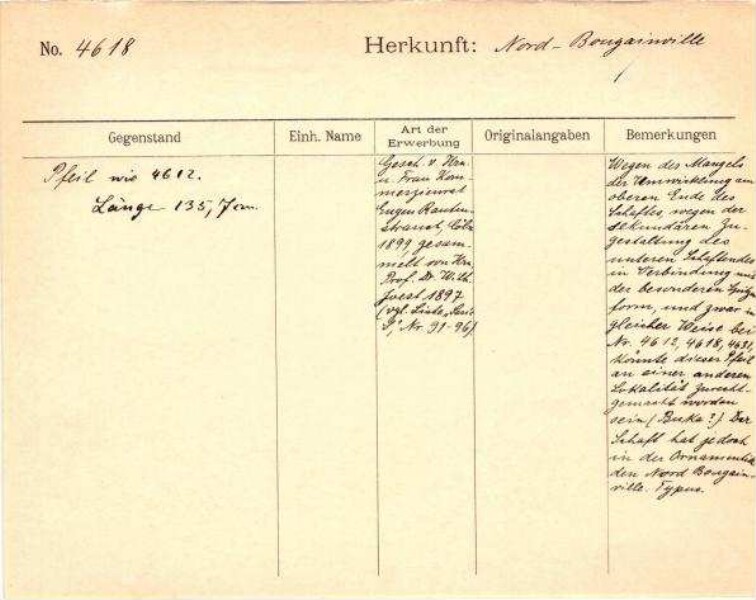 No. 4618
Herkunft: Nord-Bougainville
Gegenstand
Einh. Name
Art der
Erwerbung
Originalangaben
Bemerkungen
Pfeil wie 4612.
Länge 135,7 cm.
Gesch. v. Hrn.
u. Frau Kom-
merzienrat
Eugen Rauten-
strauch, Cöln
1899, gesam-
melt von Hrn.
Prof. Dr. Wilh.
Joest 1897
(vgl. Liste „Serie
Nr. 91-96)
Wegen des Mangels
der Umwicklung am
oberen Ende des
Schaftes, wegen der
sekundären Zu-
gestaltung des
unteren Schaftendes
in Verbindung mit
der besonderen Spitzen
form, und zwar in
gleicher Weise bei
Nr. 4612, 4618, 4631,
könnte dieser Pfeil
an einer anderen
Lokalität zurecht-
gemacht worden
sein (Buka?) Der
Schaft hat jedoch
in der Ornamentik
den Nord Bougain-
ville. Typus.